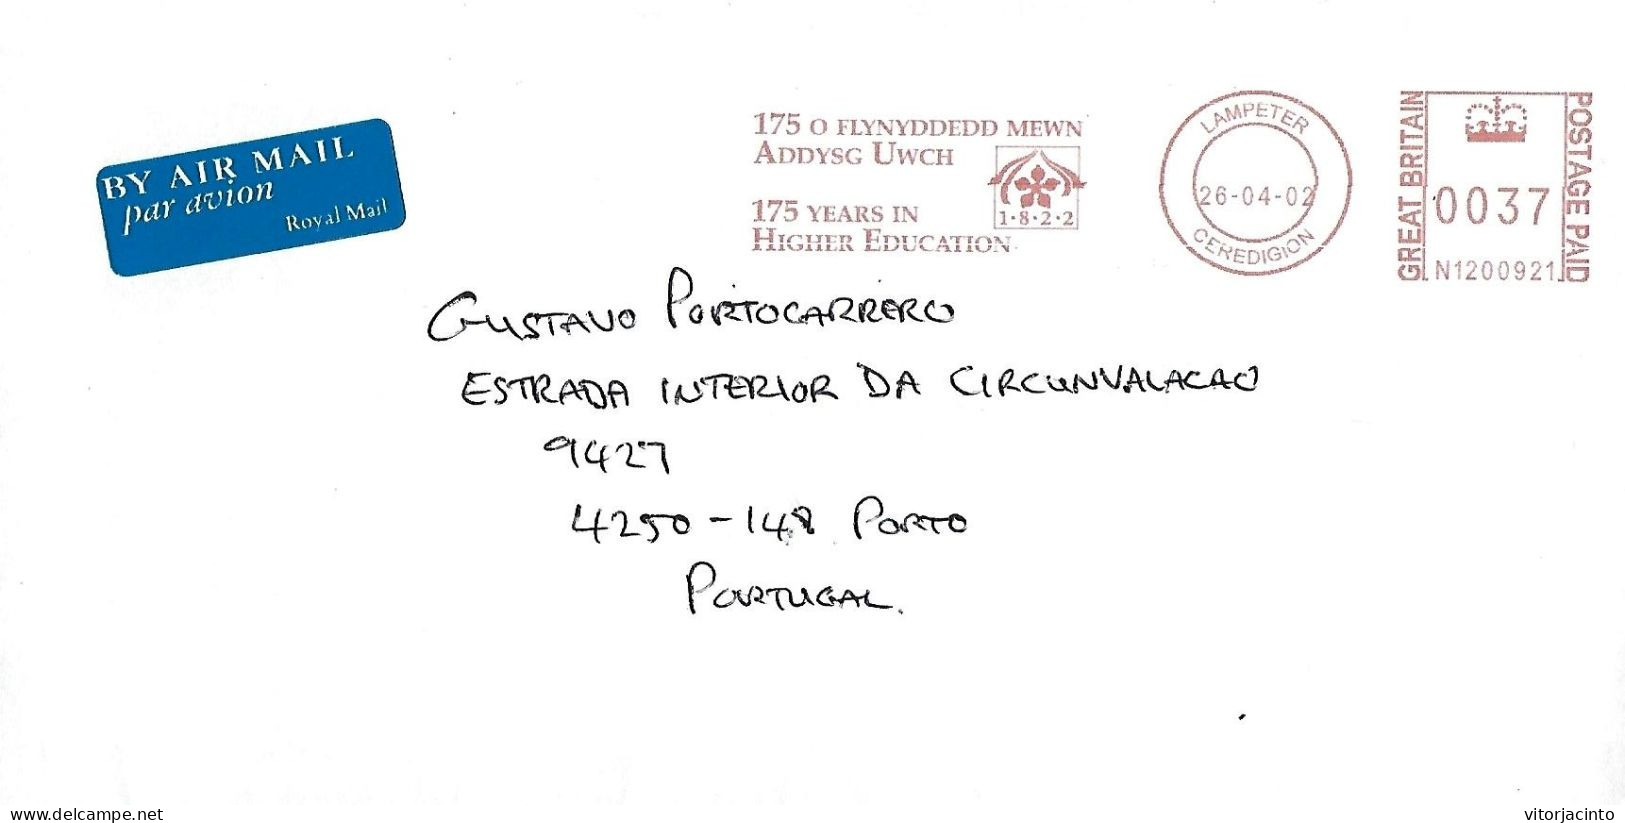 BY AIR MAIL
par avion
Royal Mail
175 O FLYNYDDEDD MEWN
ADDYSG UWCH
175 YEARS IN
HIGHER EDUCATION
1·8·2·2
LAMPETER
26-04-02
CEREDIGION
GREAT BRITAIN
0037
N1200921
POSTAGE PAID
GUSTAVO PORTOCARRERO
ESTRADA INTERIOR DA CIRCUNVALACAO
9427
4250-148 PORTO
PORTUGAL.
www.delcampe.net
vitorjacinto